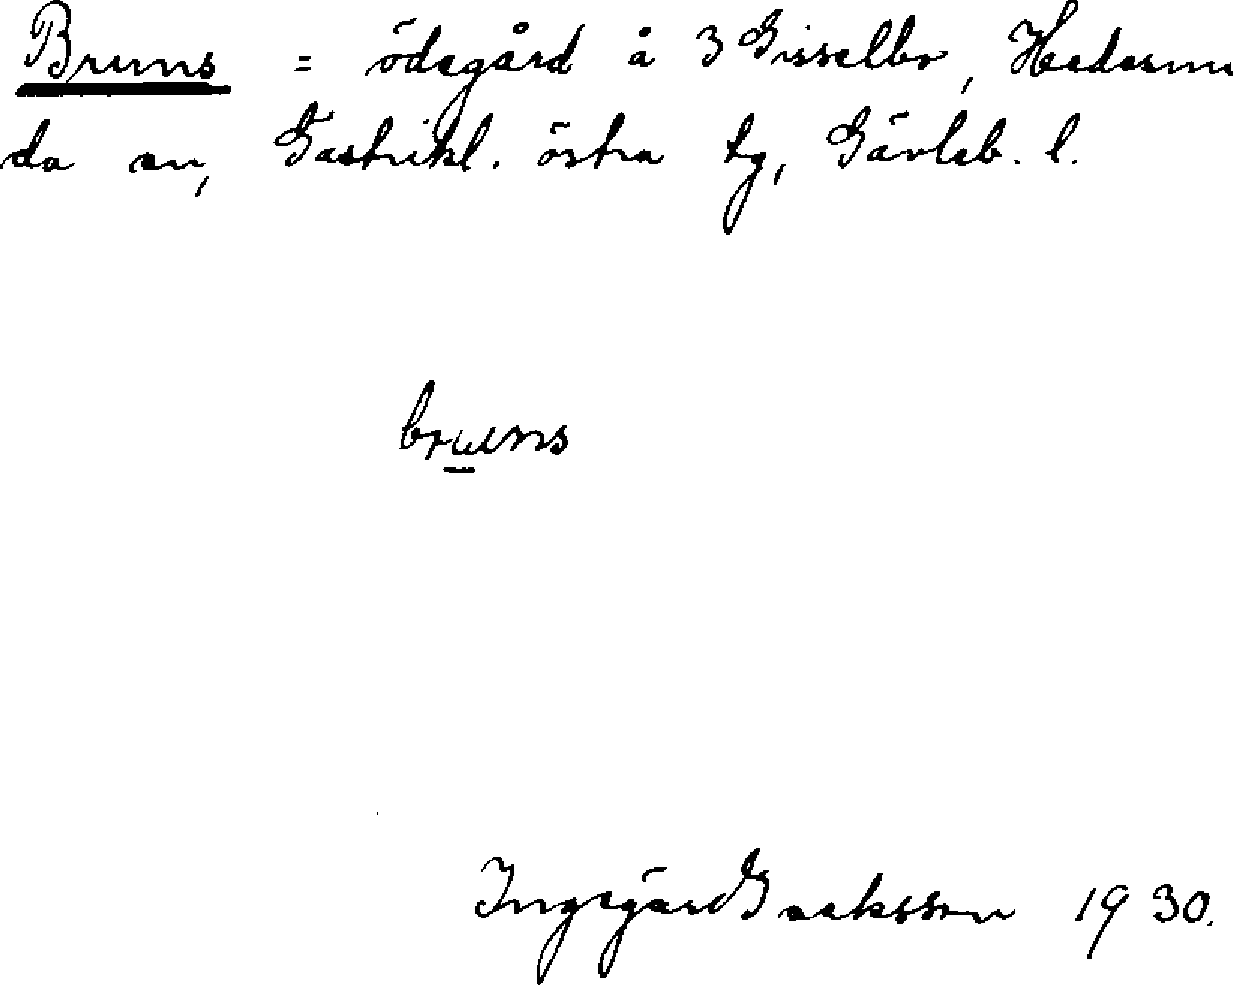 Bruns = ödegård å 3 Gisselbo, Hedesun
da sn, Gästrikl. östra tg, Gävleb. l.
bruns
Ingegärd Isaksson 1930.